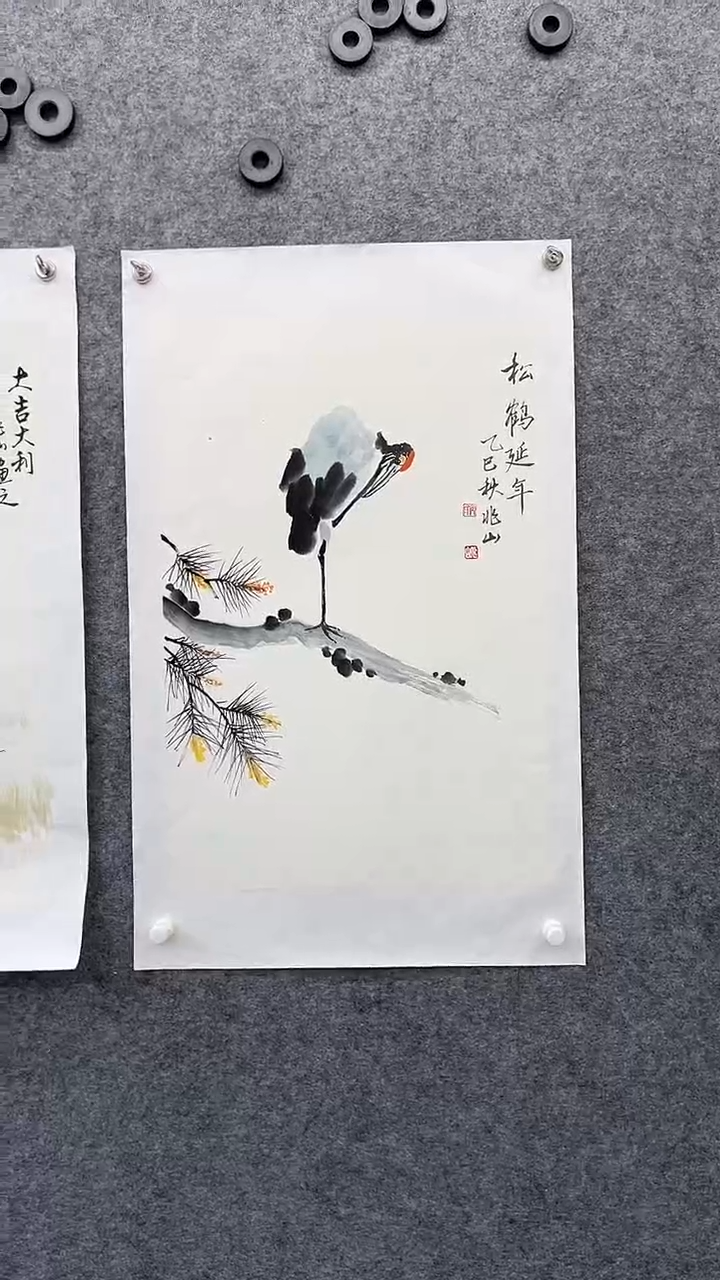 松鹤延年
乙巳秋兆山
大吉大利